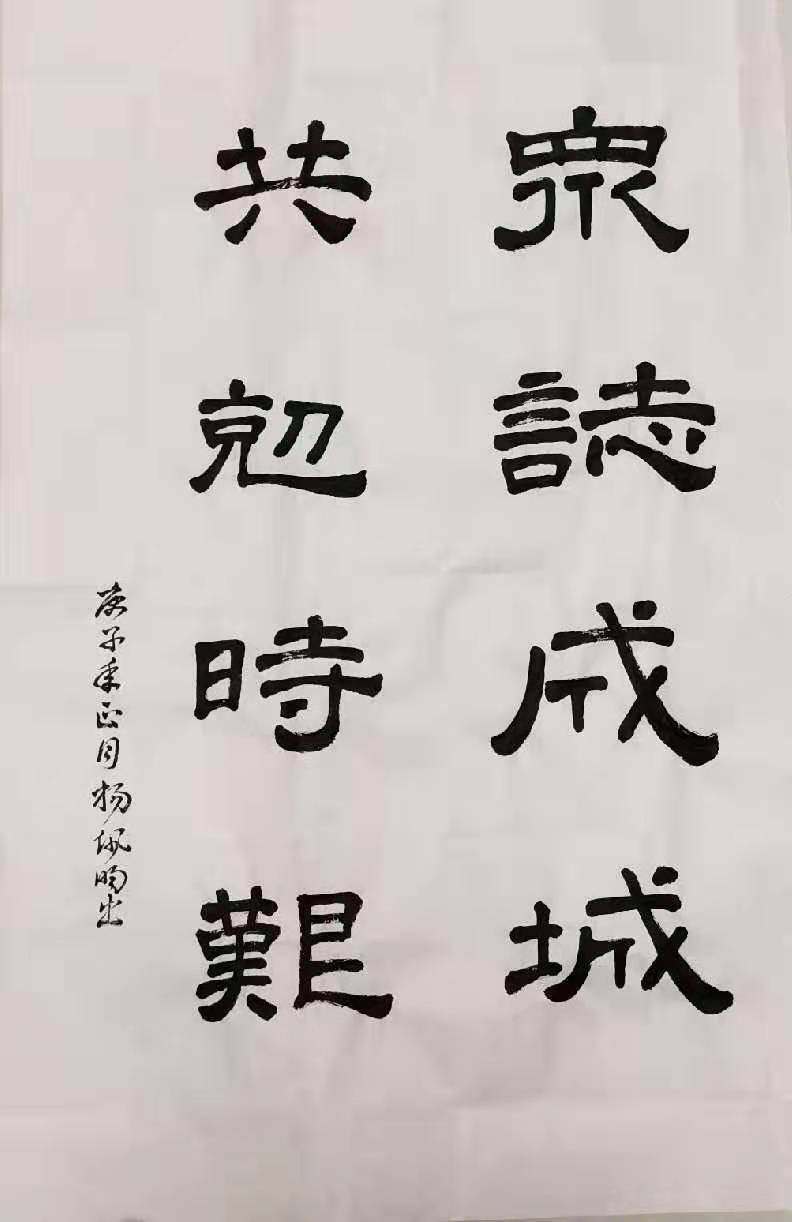 眾誌成城
共勊時艱
庚子年正月杨佩昫书